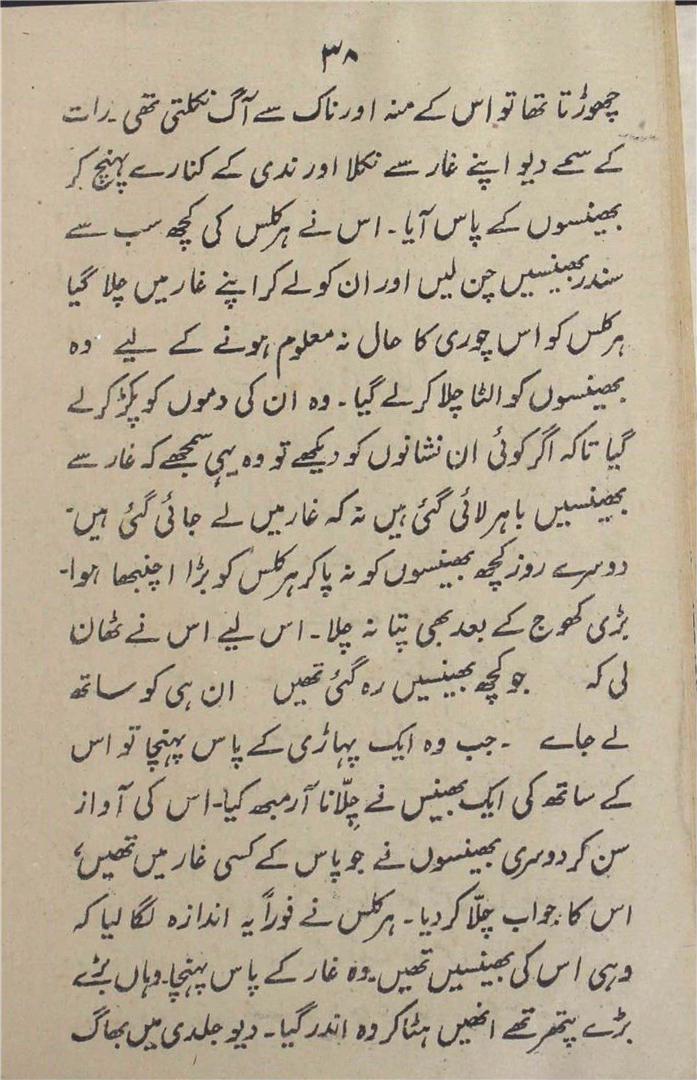 ۳۸
چھوڑتا تھا تو اس کے منہ اور ناک سے آگ نکلتی تھی۔ رات
کے سمے دیو اپنے غار سے نکلا اور ندی کے کنارے پہنچ کر
بھینسوں کے پاس آیا۔ اس نے ہرکلس کی کچھ سب سے
سندر بھینسیں چن لیں اور ان کو لے کر اپنے غار میں چلا گیا
ہرکلس کو اس چوری کا حال نہ معلوم ہونے کے لیے وہ
بھینسوں کو الٹا چلا کر لے گیا۔ وہ ان کی دموں کو پکڑ کر لے
گیا تاکہ اگر کوئی ان نشانوں کو دیکھے تو وہ یہی سمجھے کہ غار سے
بھینسیں باہر لائی گئی ہیں نہ کہ غار میں لے جائی گئی ہیں۔
دوسرے روز کچھ بھینسوں کو نہ پا کر ہرکلس کو بڑا اچنبھا ہوا۔
بڑی کھوج کے بعد بھی پتا نہ چلا۔ اس لیے اس نے ٹھان
لی کہ جو کچھ بھینسیں رہ گئی تھیں ان ہی کو ساتھ
لے جاے ۔ جب وہ ایک پہاڑی کے پاس پہنچا تو اس
کے ساتھ کی ایک بھینس نے چلّانا آرمبھ کیا۔ اس کی آواز
سن کر دوسری بھینسوں نے جو پاس کے کسی غار میں تھیں،
اس کا جواب چلّا کر دیا۔ ہرکلس نے فوراً یہ اندازہ لگا لیا کہ
وہی اس کی بھینسیں تھیں۔ وہ غار کے پاس پہنچا۔ وہاں بڑے
بڑے پتھر تھے انھیں ہٹا کر وہ اندر گیا۔ دیو جلدی میں بھاگ